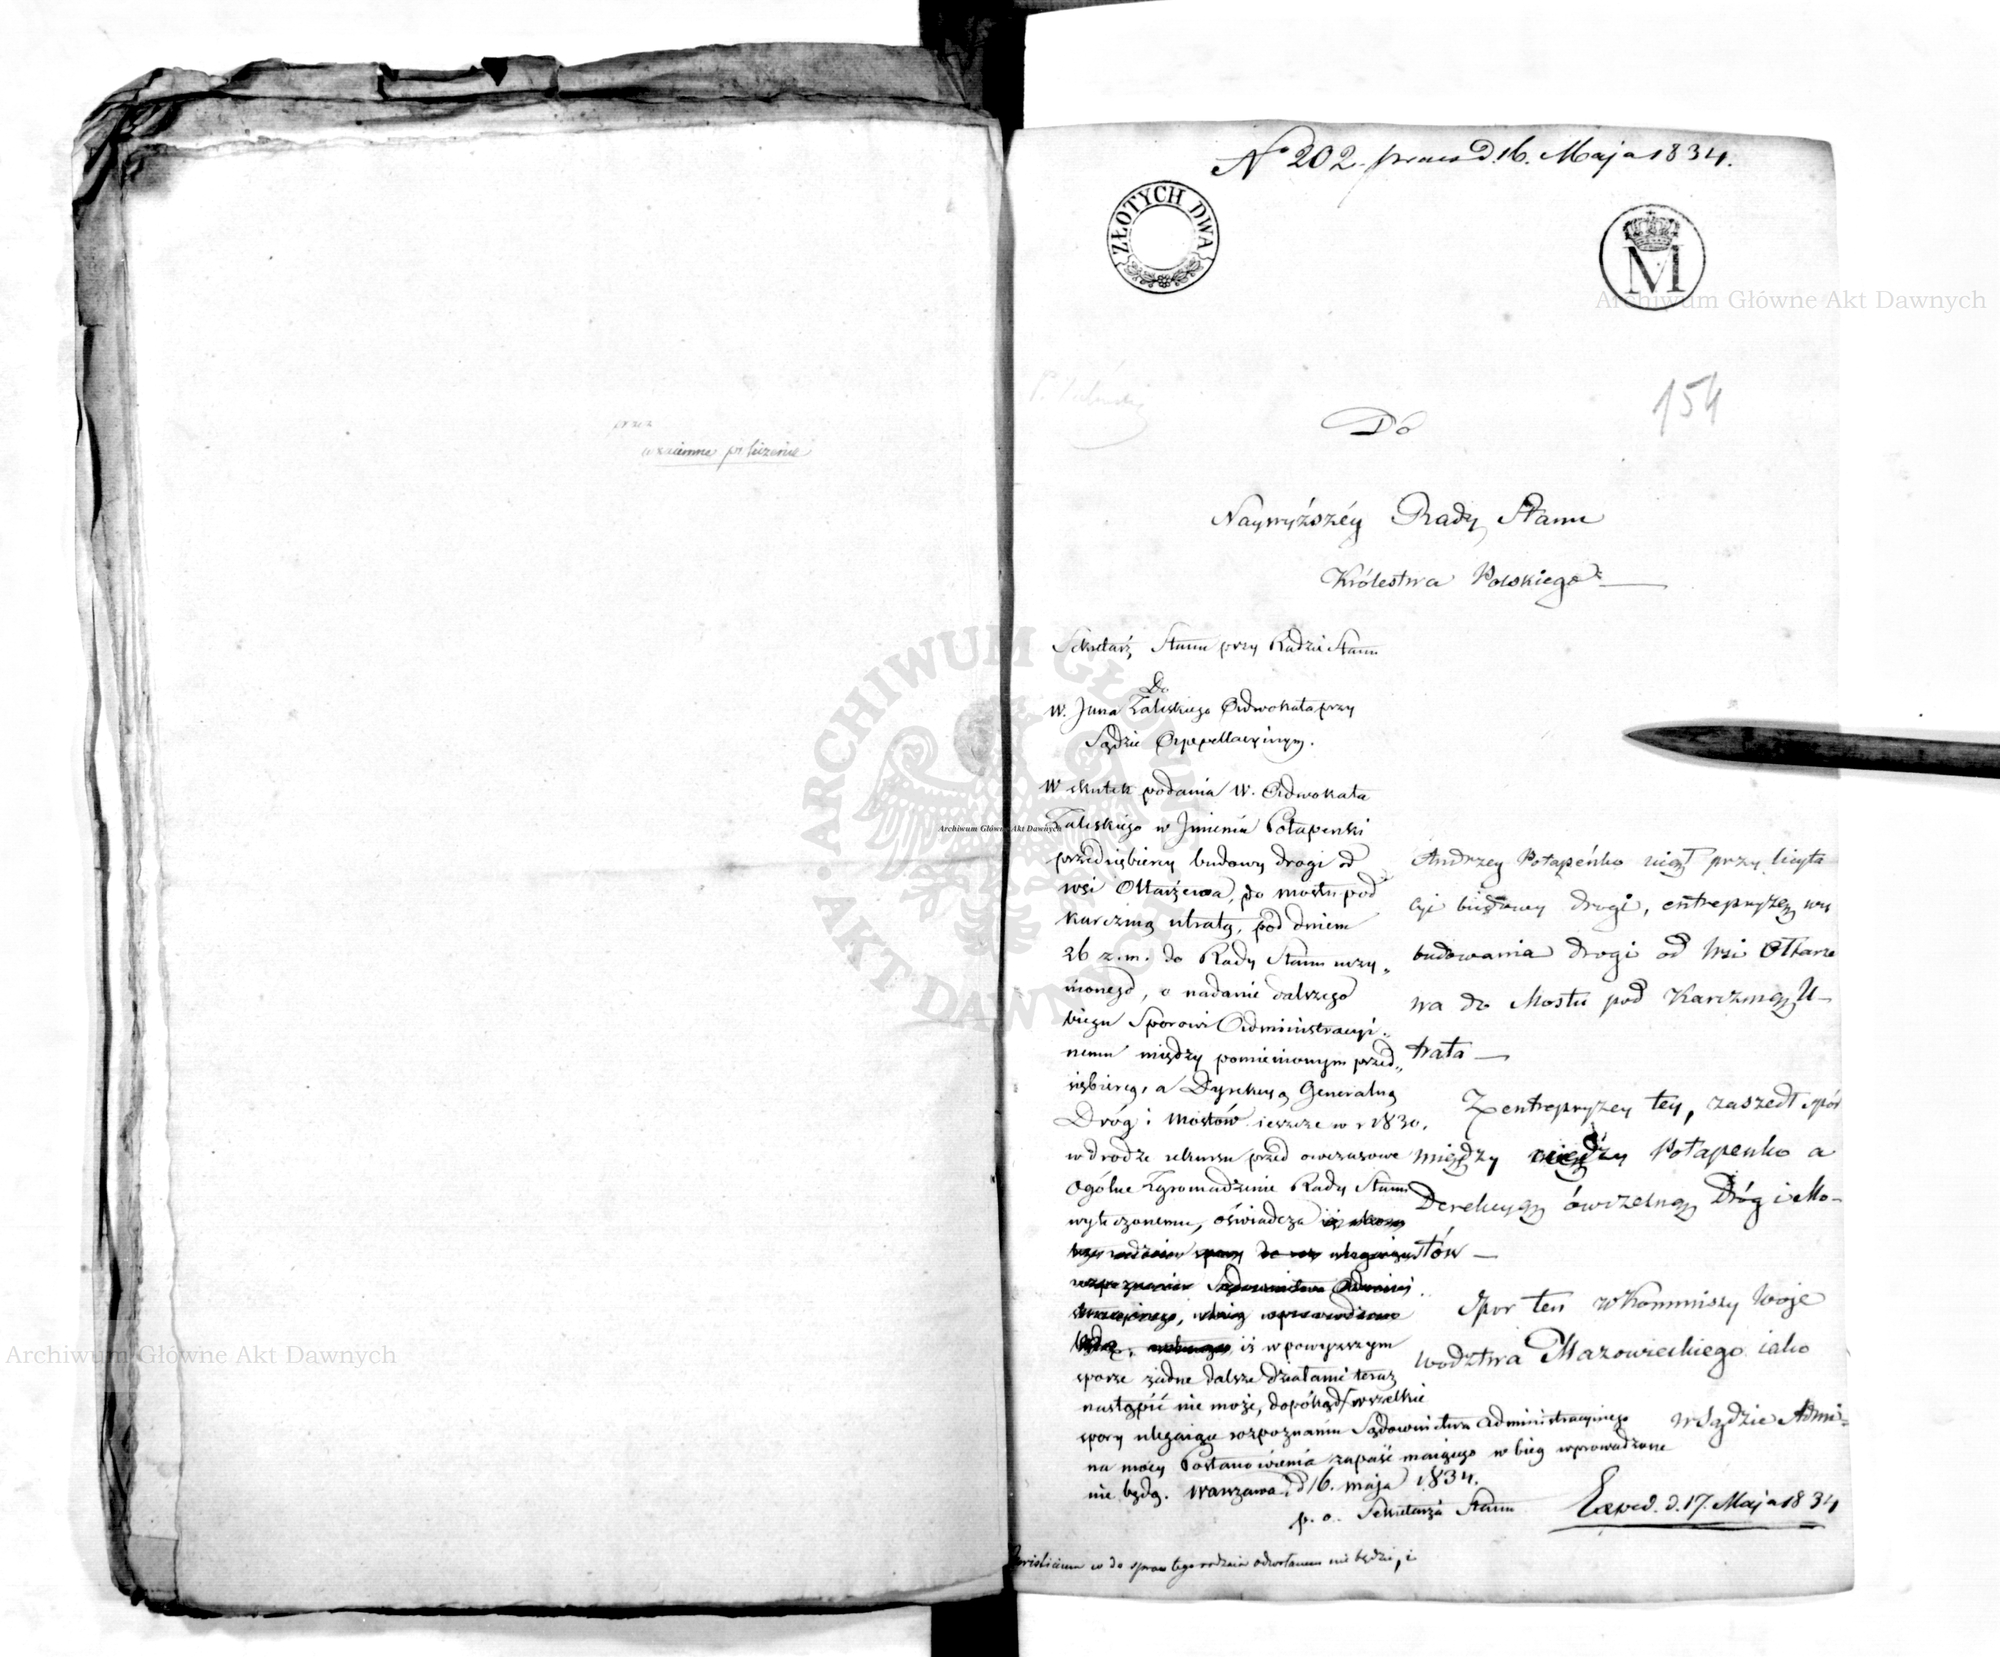 przez
wzaiemne pobliżenie
No 202. praes d. 16. Maja 1834.
ZŁOTYCH DWA
M
154
Do
Naywyższéy Rady Stanu
Królestwa Polskiego
Sekretarz Stanu przy Radzie Stanu
Do
W. Jana Zaleskiego Adwokata przy
Sądzie Appellacyinym.
W skutek podania W. Adwokata
Zaleskiego w Jmieniu Potapenki
przedsiębiercy budowy drogi od
wsi Ołtarzewa, do mostu pod
karczmą utratą, pod dniem
26 z. m. do Rady Stanu uczy„
nionego, o nadanie dalszego
biegu Sporowi Administracyi„
nemu między pomienionym przed„
siębiercą, a Dyrekcyą Generalną
Dróg i Mostów ieszcze w r 1830.
w drodze rekursu przed owczasowe
Ogólne Zgromadzenie Rady Stanu
wytoczonemu, oświadcza
iż w powyższym
sporze żadne dalsze działanie teraz
nastąpić nie może, dopókąd wszelkie
spory ulegaiące rozpoznaniu Sądownictwa Administracyinego
na mocy Postanowienia zapaść maiącego w bieg wprowadzone
nie będą. Warszawa, d 16. maja 1834.
p. o. Sekretarza Stanu
w do spraw tego rodzaiu odwołanem nie będzie, i
Andrzey Potapeńko wziął przy licyta
cyi budowy drogi, entrepryzę wy
budowania drogi od Wsi Ołtarze
wa do Mostu pod Karczmą U-
trata —
Z entrepryzy tey, zaszedł spór
między Potapenko a
Derekcyą ówczesną Dróg i Mo-
stów —
Spor ten w Kommissy Woje
wodztwa Mazowieckiego iako
w Sądzie Admi-
Exped. d. 17. Maja 1834
Archiwum Główne Akt Dawnych
Archiwum Główne Akt Dawnych
Archiwum Główne Akt Dawnych
ARCHIWUM GŁÓWNE AKT DAWNYCH